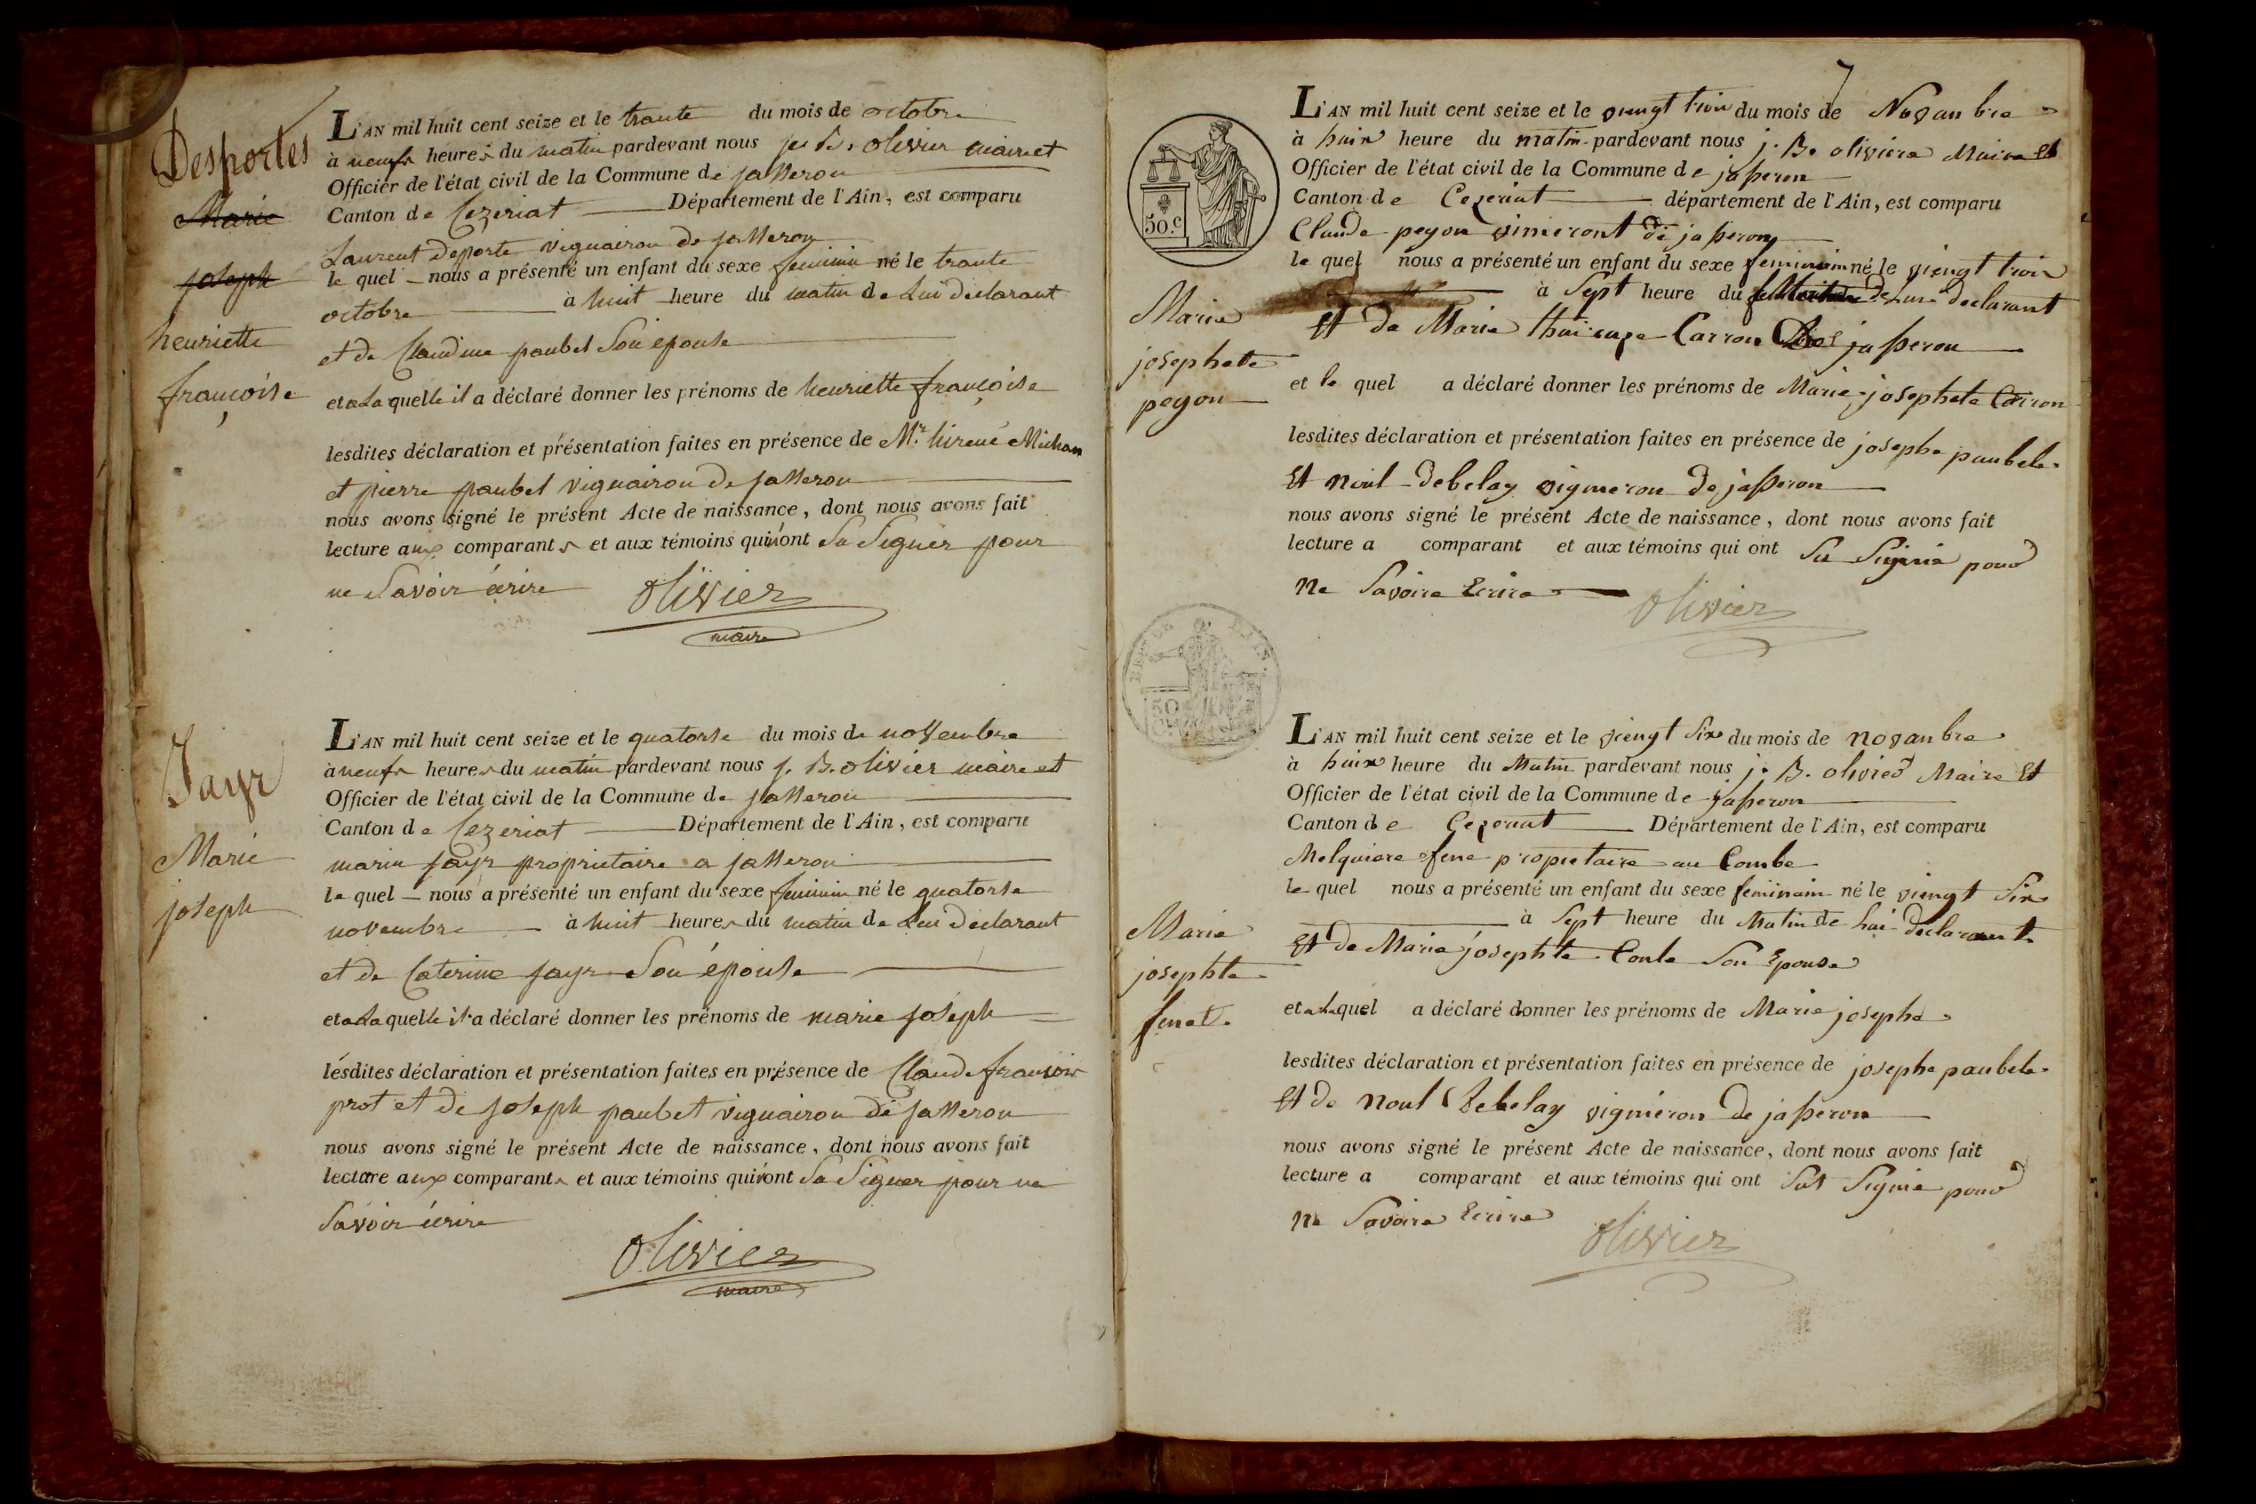 Desportes
Marie
joseph
henriette
françoise
L'AN mil huit cent seize et le trante du mois de octobre
à neufs heures du matin pardevant nous je B. olivier maire et
Officier de l'état civil de la Commune de jasseron
Canton de Cezeriat Département de l'Ain, est comparu
Laurent Deporte vignairon de jasseron
le quel nous a présenté un enfant du sexe feminin né le trante
octobre à huit heure du matin de Lui declarant
et de Claudine paubel Son épouse
et a La quelle il a déclaré donner les prénoms de henriette françoise
lesdites déclaration et présentation faites en présence de Mr. hirené Michon
et pierre paubel vignairon de jasseron
nous avons signé le présent Acte de naissance, dont nous avons fait
lecture aux comparants et aux témoins qui n'ont Su Signer pour
ne Savoir écrire
Olivier
maire
Jayr
Marie
joseph
L'AN mil huit cent seize et le quatorse du mois de novembre
à neufs heures du matin pardevant nous j. B. olivier maire et
Officier de l'état civil de la Commune de jasseron
Canton de Cezeriat Département de l'Ain, est comparu
marin jayr proprietaire a jasseron
le quel nous a présenté un enfant du sexe feminin né le quatorse
novembre à huit heures du matin de Lui declarant
et de Caterine jayr Son épouse
et a La quelle il a déclaré donner les prénoms de marie joseph
lesdites déclaration et présentation faites en présence de Claude françois
prot et de joseph paubel vignairon de jasseron
nous avons signé le présent Acte de naissance, dont nous avons fait
lecture aux comparants et aux témoins qui n'ont Su Signer pour ne
Savoir écrire
Olivier
maire
7
50.c
Marie
josephete
peyon
L'AN mil huit cent seize et le viengt trois du mois de Novanbre
à huix heure du matin pardevant nous j. B. oliviere Maire Et
Officier de l'état civil de la Commune de jaseron
Canton de Cezeriat département de l'Ain, est comparu
Claude peyon vimeront de jaseron
le quel nous a présenté un enfant du sexe feminin né le viengt trois
à Sept heure du de declarant
Et de Marie Carron jaseron
et le quel a déclaré donner les prénoms de Marie josephete Carron
lesdites déclaration et présentation faites en présence de josephe paubele
Et noul debelay vigneron de jaseron
nous avons signé le présent Acte de naissance, dont nous avons fait
lecture a comparant et aux témoins qui ont Su Signia pour
ne Savoire Ecrire
Olivier
50
Marie
josephte
fenet
L'AN mil huit cent seize et le viengt Six du mois de novanbre
à huix heure du Matin pardevant nous j. B. olivier Maire Et
Officier de l'état civil de la Commune de jaseron
Canton de Cezeriat Département de l'Ain, est comparu
Melquiore fene propietaire au Combe
le quel nous a présenté un enfant du sexe feminain né le viengt Six
à Sept heure du Matin de hui declarant
Et de Marie josephte Conte Son Epouse
et a La quel a déclaré donner les prénoms de Marie josephe
lesdites déclaration et présentation faites en présence de josephe paubele
Et de noul debelay vigneron de jaseron
nous avons signé le présent Acte de naissance, dont nous avons fait
lecture a comparant et aux témoins qui ont Sut Signia pour
ne Savoire Ecrire
Olivier